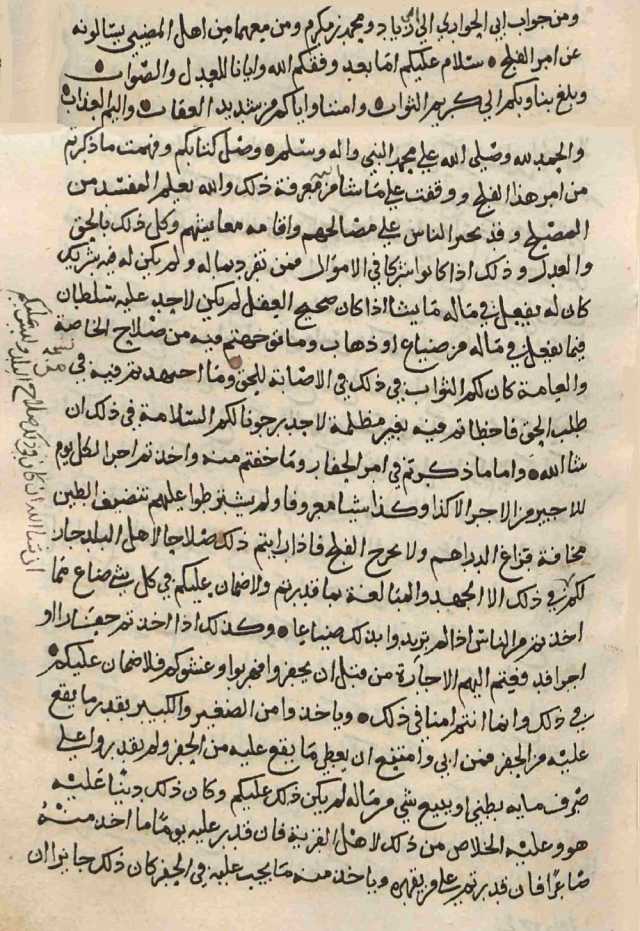 ومن جواب ابي الحواري الى زياد ومحمد بن مكرم ومن معهما من اهل المضيبي يسالونه
عن امر الفلج سلام عليكم اما بعد وفقكم الله وايانا للعدل والصواب
وبلغ بنا وبكم الى كريم الثواب وامننا واياكم من شديد العقاب واليم العذاب
والحمد لله وصلى الله على محمد النبي واله وسلم وصل كتابكم وفهمت ما ذكرتم
من امر هذا الفلج ووقفت على ما شا معرفة ذلك والله يعلم المفسد من
المصلح وقد الناس على مصالحهم واقامه معايشهم وكل ذلك بالحق
والعدل وذلك اذا كانوا شركا في الاموال فمن تفرد بماله ولم يكن له فيه شريك
كان له يفعل في ماله ما يشا اذا كان صحيح العقل لم يكن لاحد عليه سلطان
فيما يفعل في ماله من ضياع او ذهاب وما توجهتم فيه من صلاح الخاصة
والعامة كان لكم الثواب في ذلك في الاصابة للحق وما اجتهدتم فيه في
طلب الحق فاخطاتم فيه بغير مظلمة لاحد رجونا لكم السلامة في ذلك ان
شا الله واما ما ذكرتم في امر الحفار وما خفتم منه واخذتم اجرا لكل يوم
للاجير من الاجر كذا وكذا شيا معروفا ولم يشترطوا عليهم الطين
مخافة فراغ الدراهم ولا يخرج الفلج فاذا رايتم ذلك صلاحا لاهل البلد جاز
لكم في ذلك الا الجهد والمبالغة بما قدرتم ولا ضمان عليكم في كل شي ضاع مما
اخذتم من الناس اذا لم تريدوا بذلك ضياعا وكذلك اذا اخذتم حفارا او
اجرا فدفعتم اليهم الاجارة من قبل ان يحفروا فهربوا وغشوكم فلا ضمان عليكم
في ذلك وانما انتم امنا في ذلك وياخذوا من الصغير والكبير بقدر ما يقع
عليه من الحفر فمن ابى وامتنع ان يعطي ما يقع عليه من الحفر ولم يقدروا على
صرف مايه او بيع شي من ماله لم يكن ذلك عليكم وكان ذلك دينا عليه
هو وعليه الخلاص من ذلك لاهل القرية فان قدر عليه يوما ما اخذ منه
صاغرا فان قدرتم على من يقهره وياخذ منه ما يجب عليه في الحفر كان ذلك جايزا ان
صلاح البلد
ان شا الله ان كان